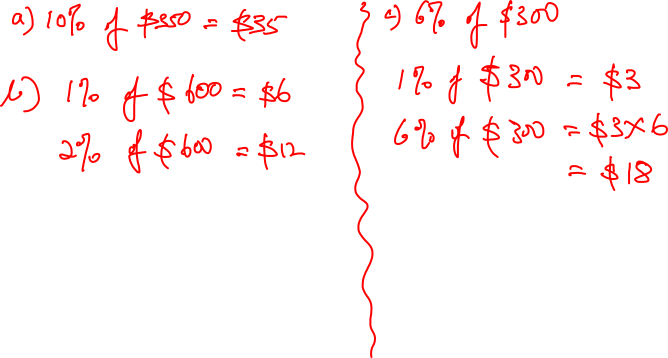 a) 10% of $350 = $35
b) 1% of $600 = $6
2% of $600 = $12
c) 6% of $300
1% of $300 = $3
6% of $300 = $3×6
= $18